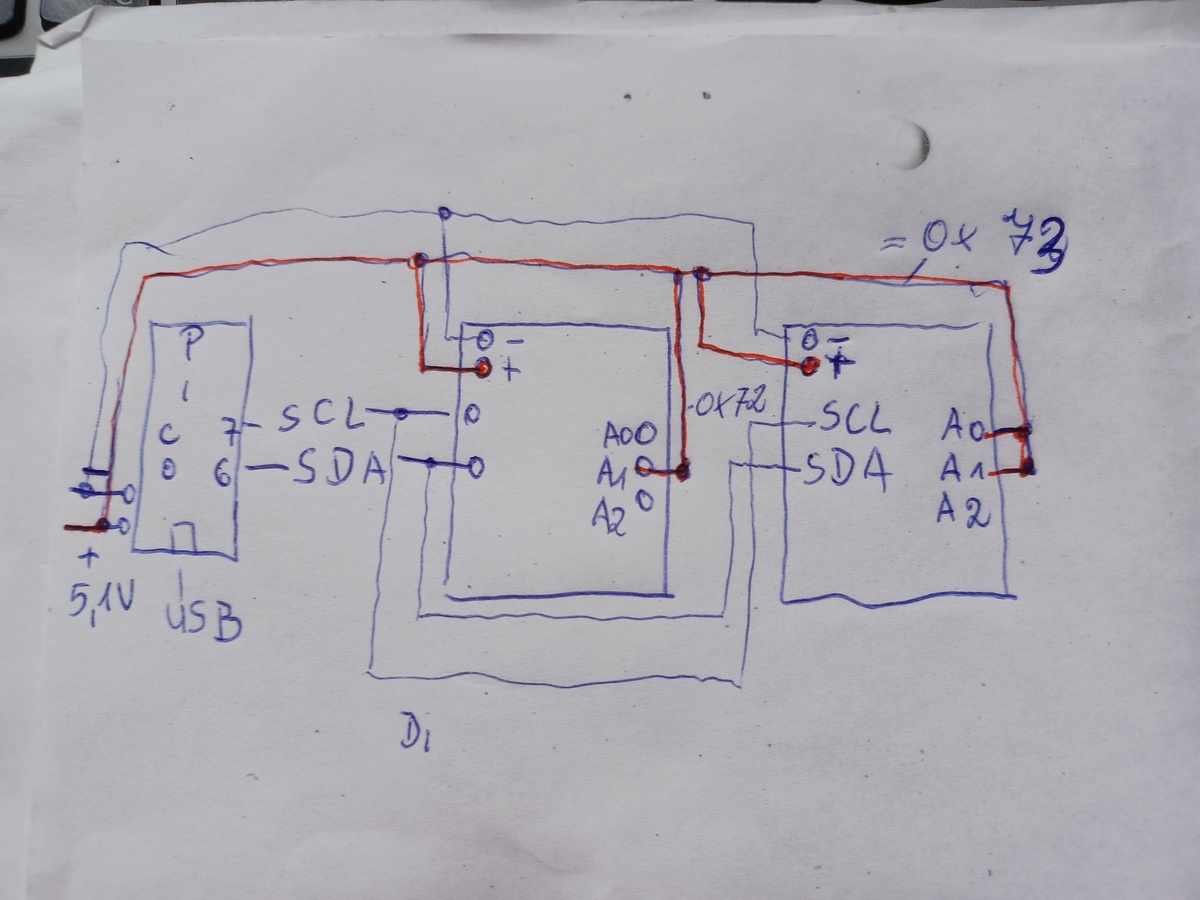 = 0x 73
P
i
c
o
7
6
SCL
SDA
-
+
A0
A1
A2
-0x72
-
+
SCL
SDA
A0
A1
A2
+
5,1V
USB
Di